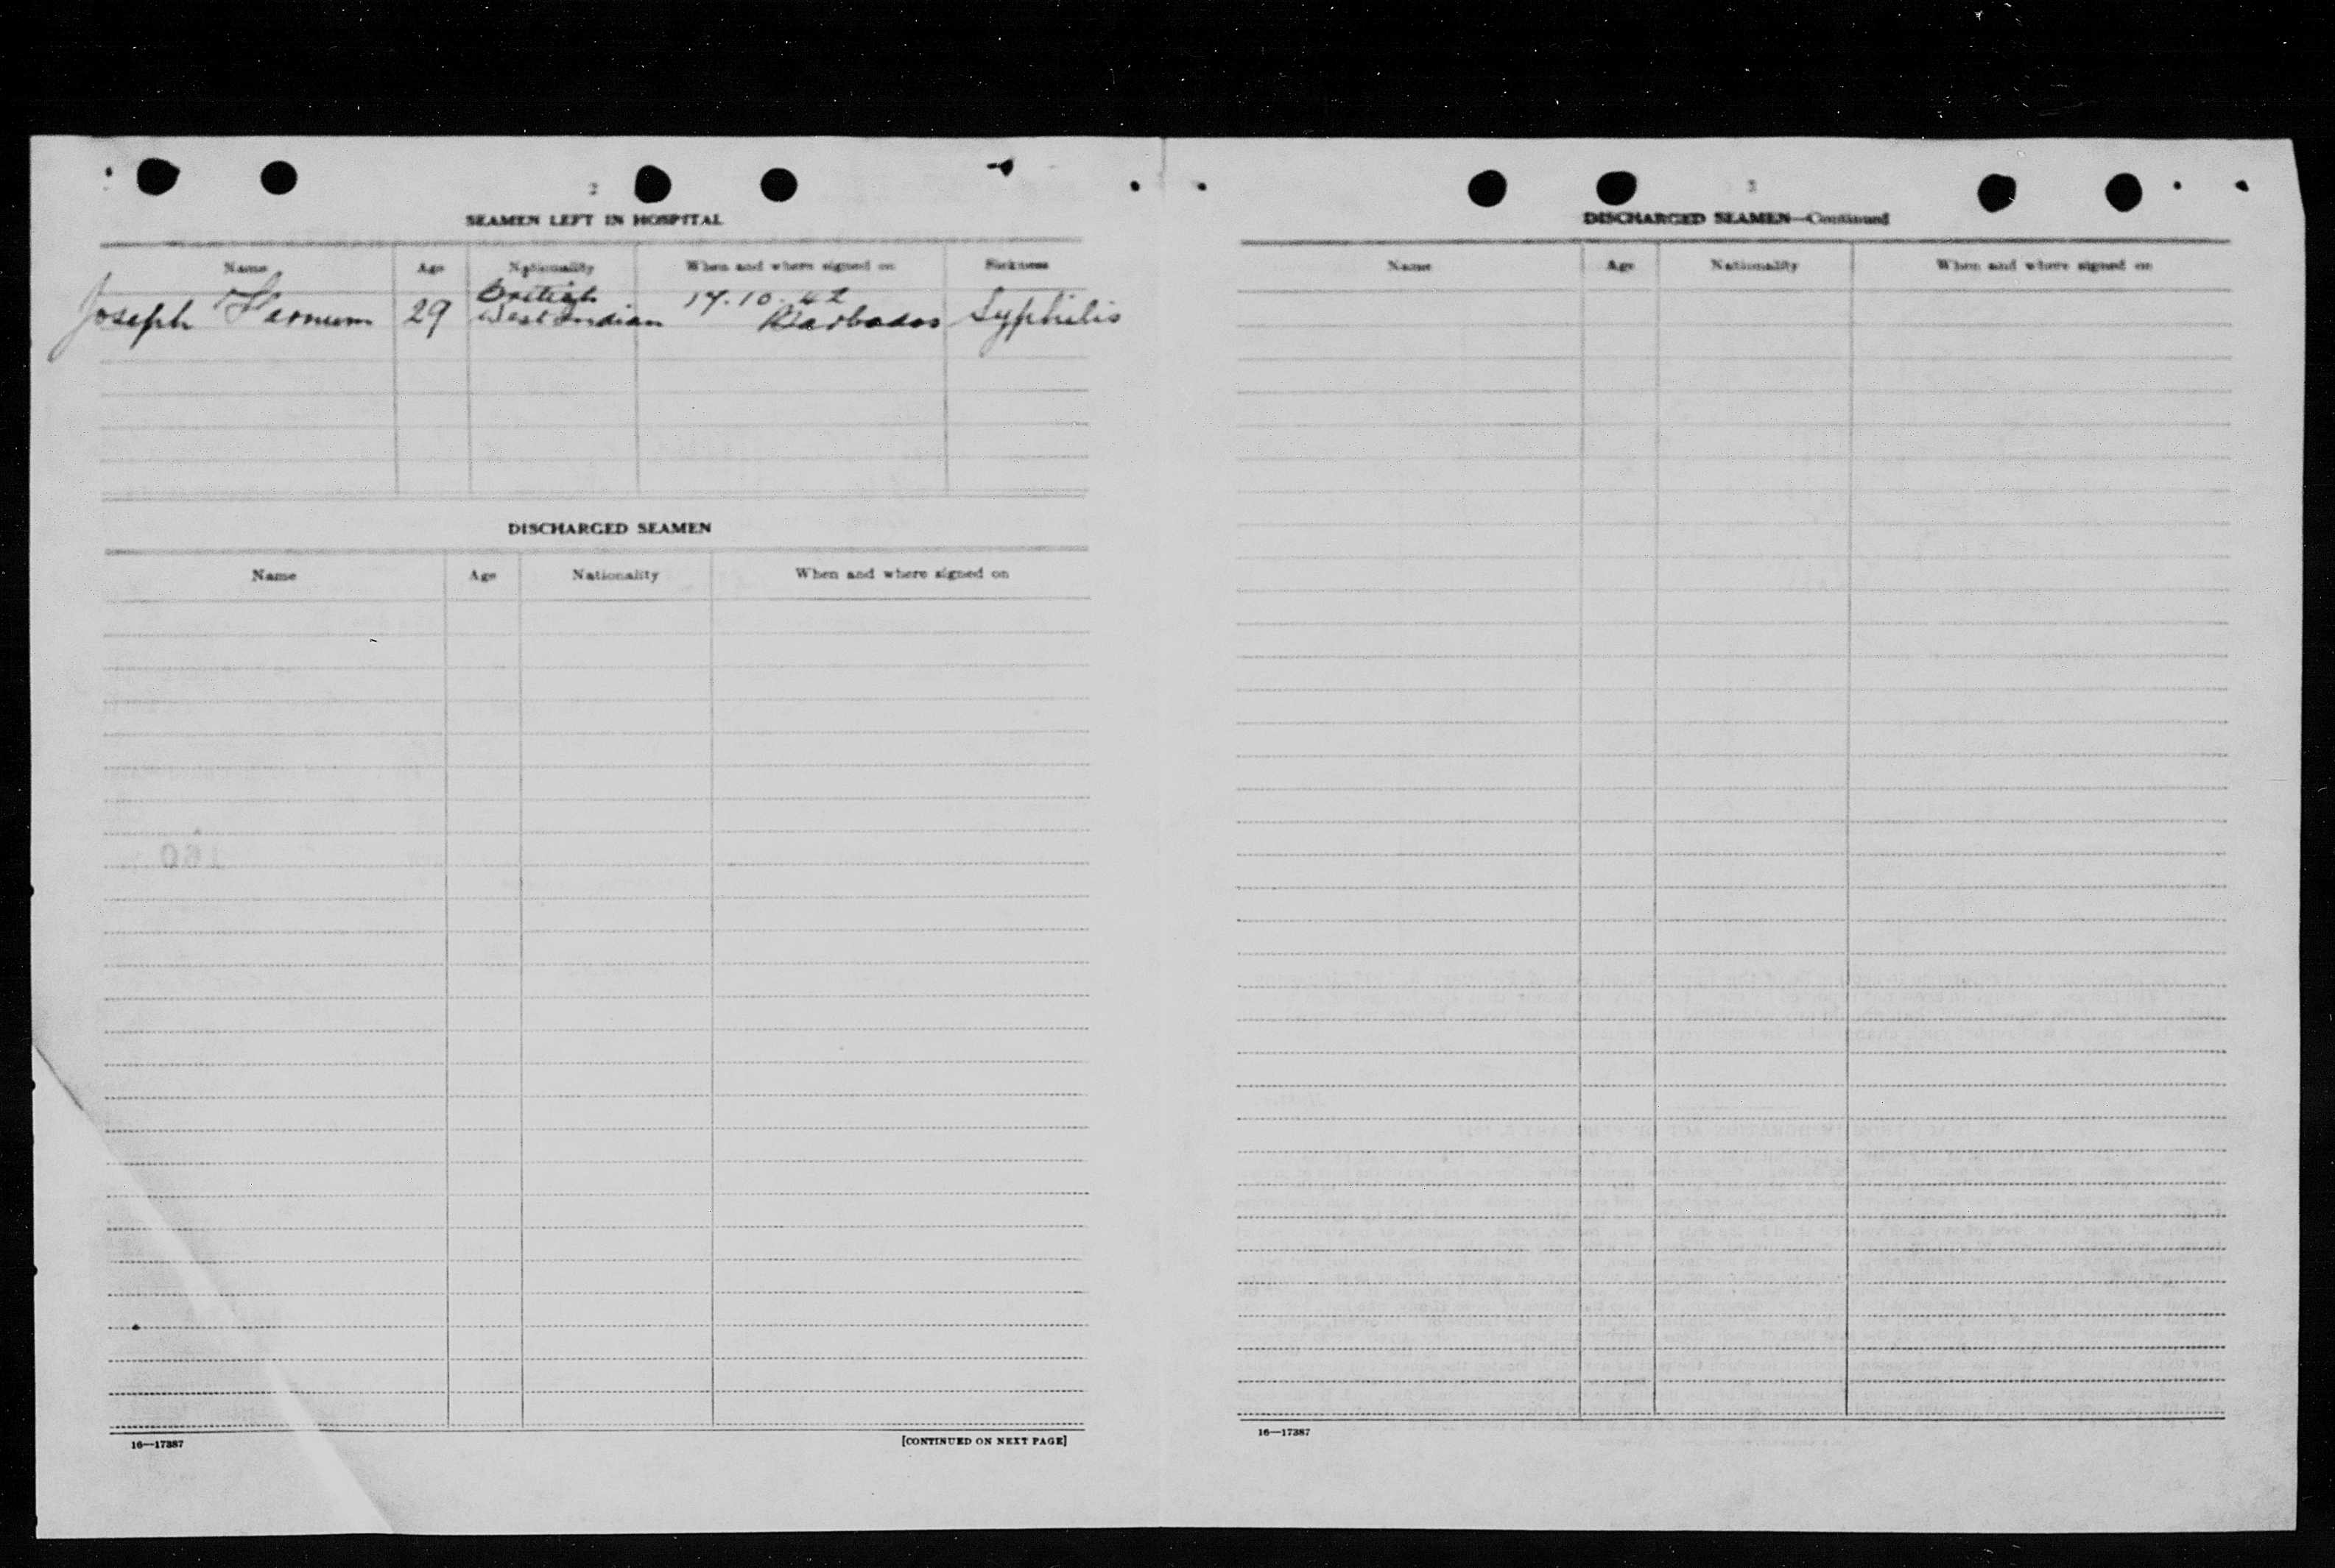 2
SEAMEN LEFT IN HOSPITAL
Name Age Nationality When and where signed on Sickness
British 17.10.42
Joseph 29 West Indian Barbados Syphilis
DISCHARGED SEAMEN
Name Age Nationality When and where signed on
16—17387 [CONTINUED ON NEXT PAGE]
3
DISCHARGED SEAMEN—Continued
Name Age Nationality When and where signed on
16—17387